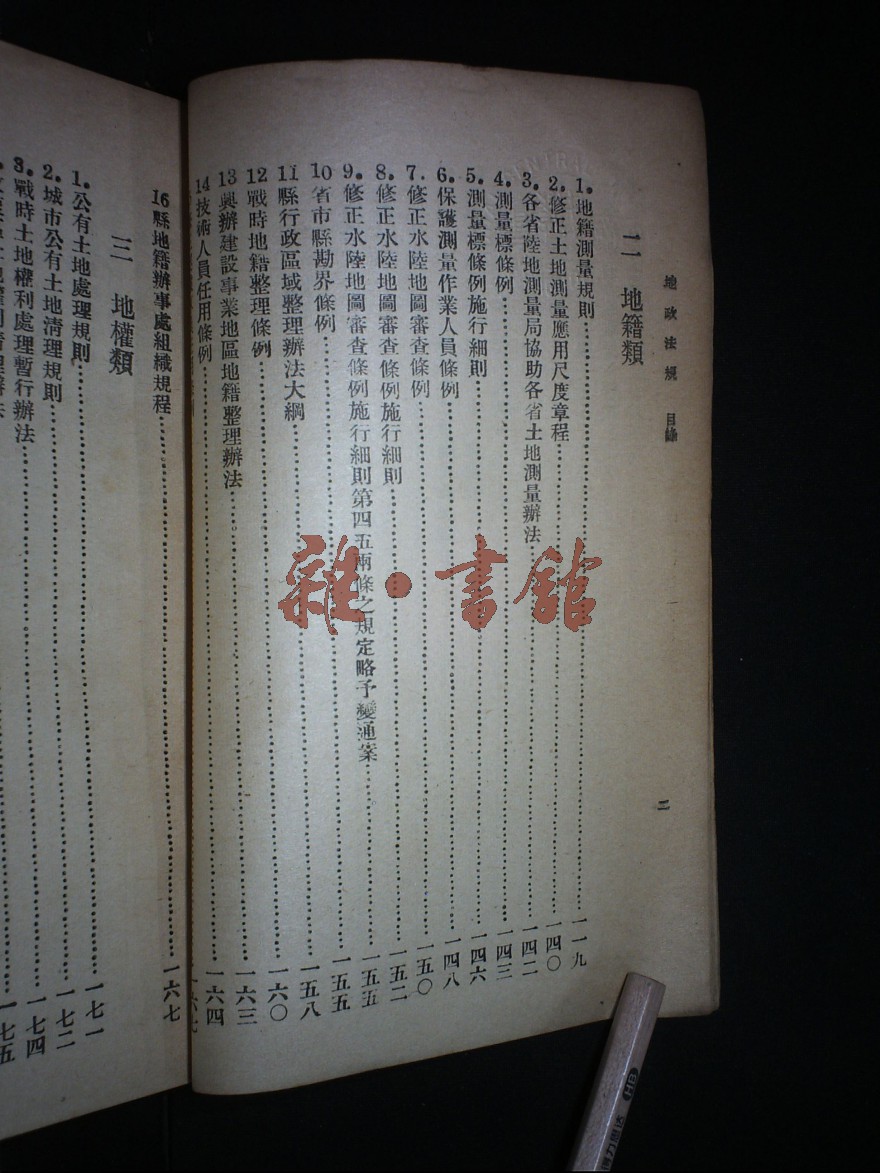 地政法規 目錄
二
二 地籍類
1. 地籍測量規則 一一九
2. 修正土地測量應用尺度章程 一四〇
3. 各省陸地測量局協助各省土地測量辦法 一四二
4. 測量標條例 一四三
5. 測量標條例施行細則 一四六
6. 保護測量作業人員條例 一四八
7. 修正水陸地圖審查條例 一五〇
8. 修正水陸地圖審查條例施行細則 一五二
9. 修正水陸地圖審查條例施行細則第四五兩條之規定略予變通案 一五五
10 省市縣勘界條例 一五五
11 縣行政區域整理辦法大綱 一五八
12 戰時地籍整理條例 一六〇
13 興辦建設事業地區地籍整理辦法 一六三
14 技術人員任用條例 一六四
16 縣地籍辦事處組織規程 一六七
三 地權類
1. 公有土地處理規則 一七一
2. 城市公有土地清理規則 一七二
3. 戰時土地權利處理暫行辦法 一七四
一七五
雜·書館
HB